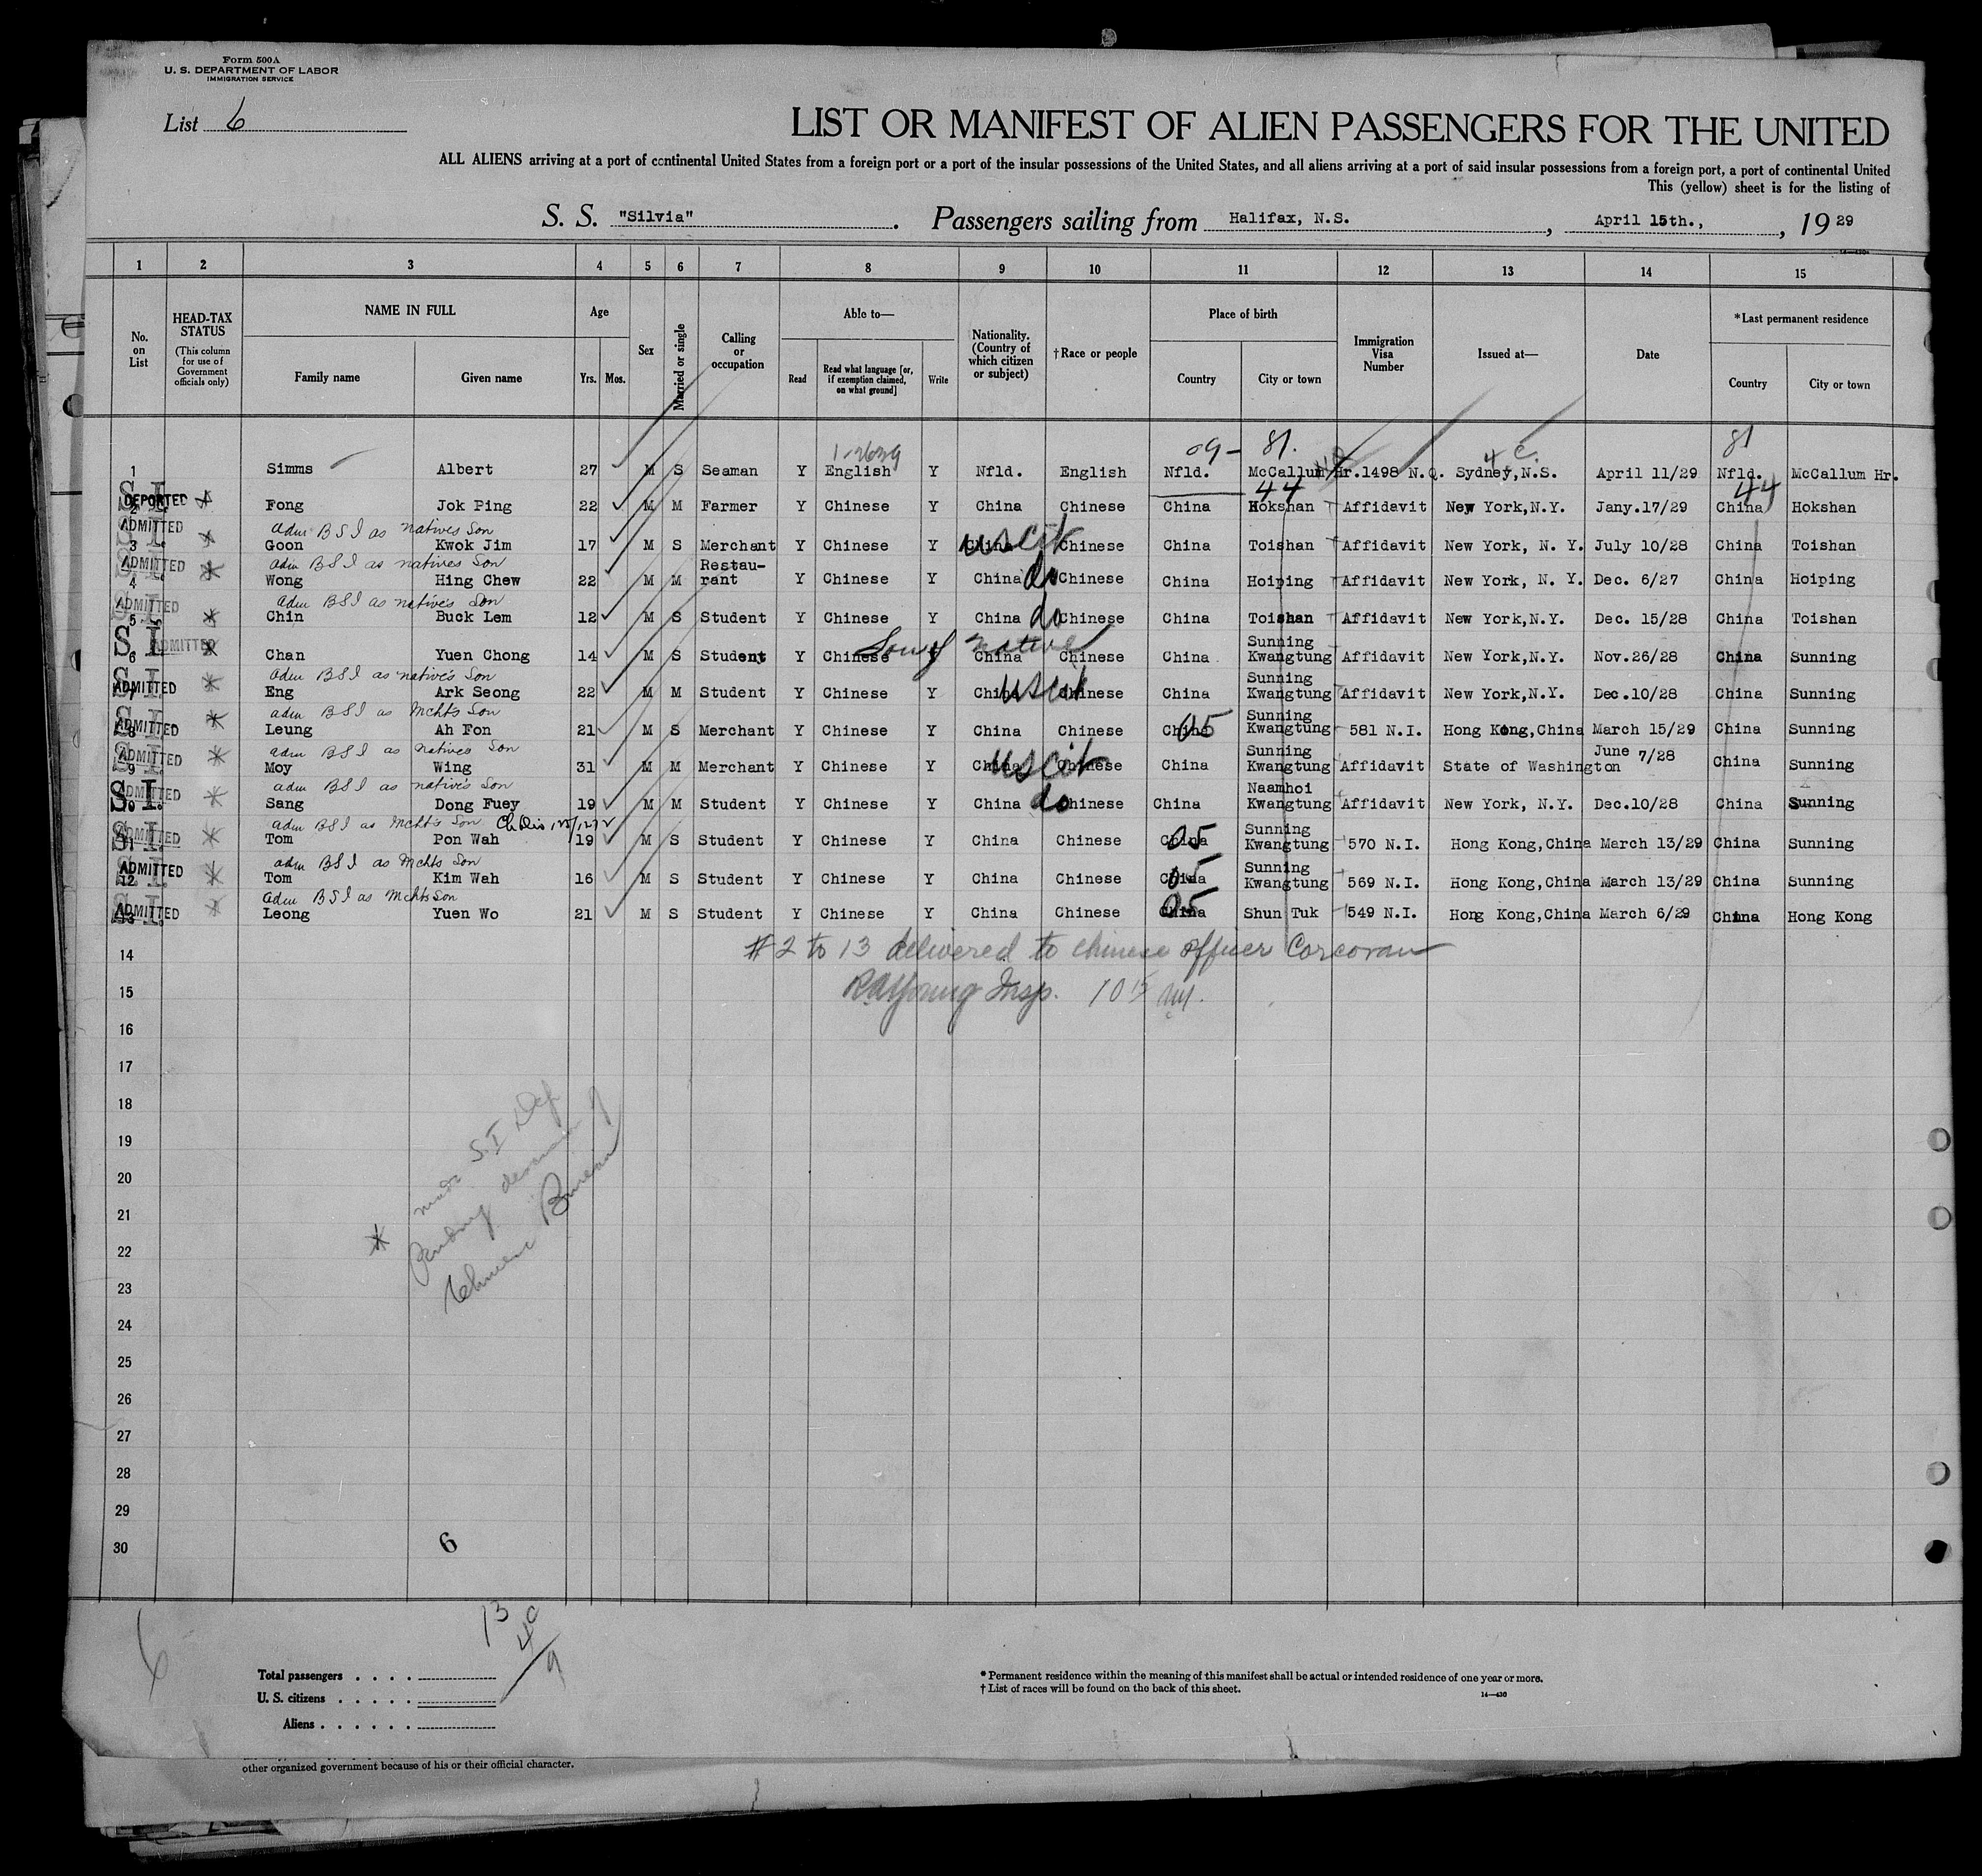 Form 500A
U. S. DEPARTMENT OF LABOR
IMMIGRATION SERVICE
List 6
LIST OR MANIFEST OF ALIEN PASSENGERS FOR THE UNITED
ALL ALIENS arriving at a port of continental United States from a foreign port or a port of the insular possessions of the United States, and all aliens arriving at a port of said insular possessions from a foreign port, a port of continental United
This (yellow) sheet is for the listing of
S. S. "Silvia". Passengers sailing from Halifax, N.S., April 15th., , 19 29
1 2 3 4 5 6 7 8 9 10 11 12 13 14 15
No. on List
HEAD-TAX STATUS
(This column for use of Government officials only)
NAME IN FULL
Family name Given name
Age
Yrs. Mos.
Sex
Married or single
Calling or occupation
Able to—
Read
Read what language [or, if exemption claimed, on what ground]
Write
Nationality. (Country of which citizen or subject)
†Race or people
Place of birth
Country City or town
Immigration Visa Number
Issued at—
Date
*Last permanent residence
Country City or town
1-2629 09- 81. 4 C. 81
1 Simms Albert 27 M S Seaman Y English Y Nfld. English Nfld. McCallum Hr. 1498 N.Q. Sydney, N.S. April 11/29 Nfld. McCallum Hr.
44 44
S.I. DEPORTED
2 Fong Jok Ping 22 M M Farmer Y Chinese Y China Chinese China Hokshan Affidavit New York,N.Y. Jany.17/29 China Hokshan
S.I. ADMITTED adm BSI as natives Son
3 Goon Kwok Jim 17 M S Merchant Y Chinese Y China US cit Chinese China Toishan Affidavit New York, N. Y. July 10/28 China Toishan
S.I. ADMITTED adm BSI as natives Son
4 Wong Hing Chew 22 M M Restau-rant Y Chinese Y China do Chinese China Hoiping Affidavit New York, N. Y. Dec. 6/27 China Hoiping
S.I. ADMITTED adm BSI as native's Son
5 Chin Buck Lem 12 M S Student Y Chinese Y China do Chinese China Toishan Affidavit New York,N.Y. Dec. 15/28 China Toishan
S.I. ADMITTED Son of native
6 Chan Yuen Chong 14 M S Student Y Chinese Y China Chinese China Sunning Kwangtung Affidavit New York,N.Y. Nov.26/28 China Sunning
S.I. ADMITTED adm BSI as native's Son
7 Eng Ark Seong 22 M M Student Y Chinese Y China US cit Chinese China Sunning Kwangtung Affidavit New York,N.Y. Dec.10/28 China Sunning
S.I. ADMITTED adm BSI as Mcht's Son
8 Leung Ah Fon 21 M S Merchant Y Chinese Y China Chinese China 05 Sunning Kwangtung 581 N.I. Hong Kong,China March 15/29 China Sunning
S.I. ADMITTED adm BSI as natives Son
9 Moy Wing 31 M M Merchant Y Chinese Y China US cit Chinese China Sunning Kwangtung Affidavit State of Washington June 7/28 China Sunning
S.I. ADMITTED adm BSI as native's Son
10 Sang Dong Fuey 19 M M Student Y Chinese Y China do Chinese China Naamhoi Kwangtung Affidavit New York, N.Y. Dec.10/28 China Sunning
S.I. ADMITTED adm BSI as Mcht's Son
11 Tom Pon Wah 19 M S Student Y Chinese Y China Chinese China 05 Sunning Kwangtung 570 N.I. Hong Kong,China March 13/29 China Sunning
S.I. ADMITTED adm BSI as Mchts Son
12 Tom Kim Wah 16 M S Student Y Chinese Y China Chinese China 05 Sunning Kwangtung 569 N.I. Hong Kong,China March 13/29 China Sunning
S.I. ADMITTED adm BSI as Mchts Son
13 Leong Yuen Wo 21 M S Student Y Chinese Y China Chinese China 05 Shun Tuk 549 N.I. Hong Kong,China March 6/29 China Hong Kong
14 #2 to 13 delivered to chinese officer Corcoran
15 RA Young Insp. 10 15
16
17
18
19
20
21
22
23
24
25
26
27
28
29
30
* made S.I
Pending
Chinese Bureau
6
6
13
4
9
Total passengers . . . .
U. S. citizens . . . . .
Aliens . . . . . .
*Permanent residence within the meaning of this manifest shall be actual or intended residence of one year or more.
†List of races will be found on the back of this sheet.
14—430
other organized government because of his or their official character.